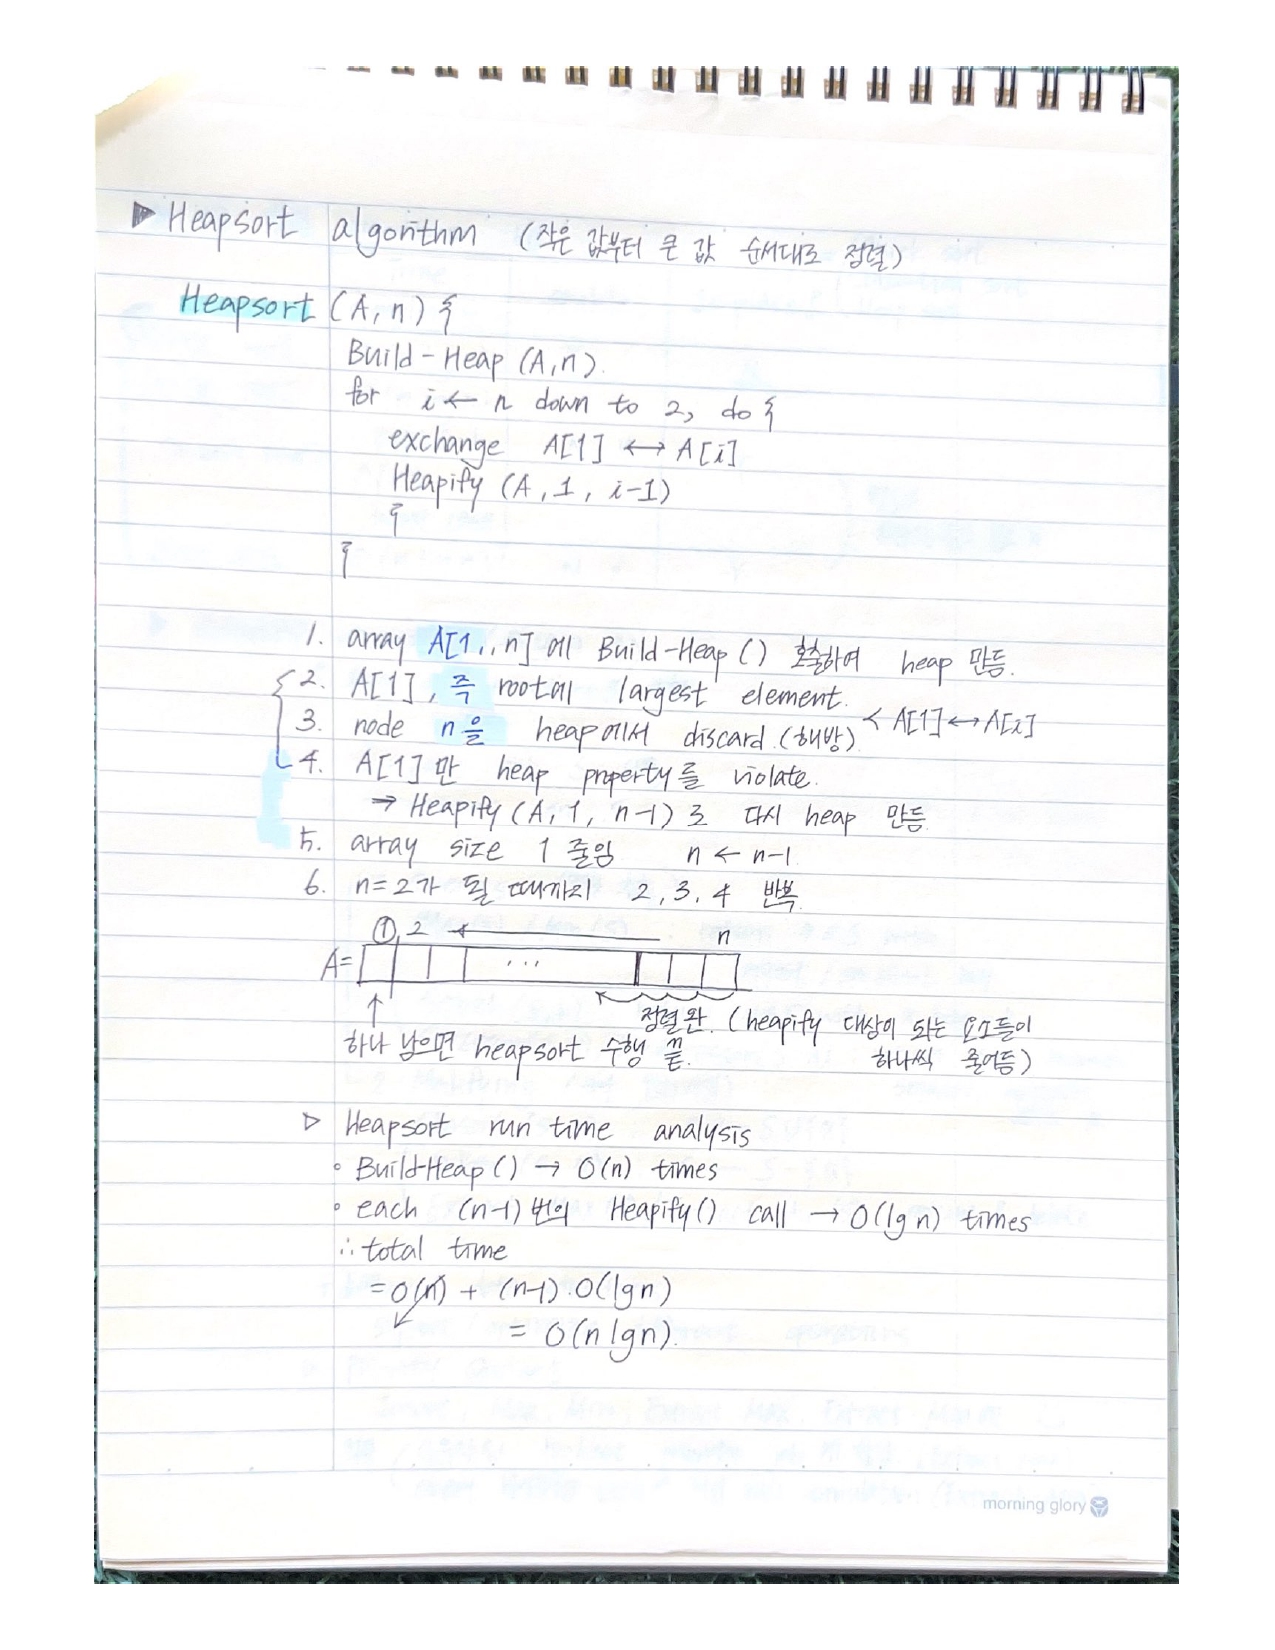 ▶ Heapsort algorithm (작은 값부터 큰 값 순서대로 정렬)
Heapsort (A, n) {
Build-Heap (A, n).
for i ← n down to 2, do {
exchange A[1] ↔ A[i]
Heapify (A, 1, i-1)
}
}
1. array A[1..n]에 Build-Heap () 호출하여 heap 만듬.
2. A[1], 즉 root에 largest element.
3. node n을 heap에서 discard (해방) < A[1] ↔ A[i]
4. A[1]만 heap property를 violate.
→ Heapify (A, 1, n-1)로 다시 heap 만듬.
5. array size 1 줄임 n ← n-1
6. n=2가 될 때까지 2, 3, 4 반복.
① 2 ← n
A= ...
정렬 완. (heapify 대상이 되는 요소들이
하나 남으면 heapsort 수행 끝. 하나씩 줄어듬)
▷ Heapsort run time analysis
∘ Build-Heap () → O(n) times
∘ each (n-1)번의 Heapify() call → O(lg n) times
∴ total time
= O(n) + (n-1)·O(lg n)
= O(n lg n).
morning glory